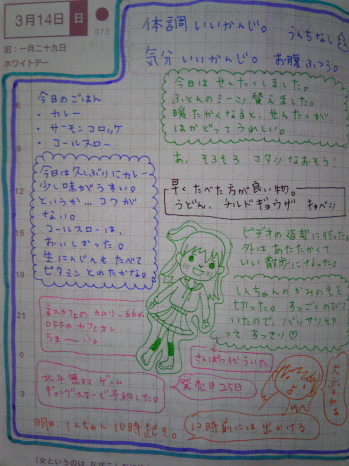 3月14日 日
073
旧:一月二十九日
ホワイトデー
体調 いいかんじ。
うんちなし
気分 いいかんじ。 お腹ふつう。
今日のごはん
・カレー
・サーモンコロッケ
・コールスロー
今日はせんたくしました。
ふとんのシーツ替えました。
暖たかくなると、せんたくが
はかどってうれしい。
あ、そろそろ コタツ なおそう!
今日は久しぶりにカレー
少し味がうすい。
というか… コクが
ない。
コールスローは、
おいしかった。
生にんじんをたべて
ビタミン とれたかな。
早く たべた方が良い物。
うどん、チルドギョウザ キャベツ
ビデオの返却に行った
外は あたたかくて
いい散歩になった。
しんちゃんの かみの毛を
切った。
いたので、バッサリ
すっきり♡
ネスカフェの カロリー
OFFの カフェオレ
うま〜い。
さんぱつしてういた
ゲーム
で予約した。
発売日25日
8
9
12
15
18
21
0
3
明日、しんちゃん 10時起き。
12時前には 出かける